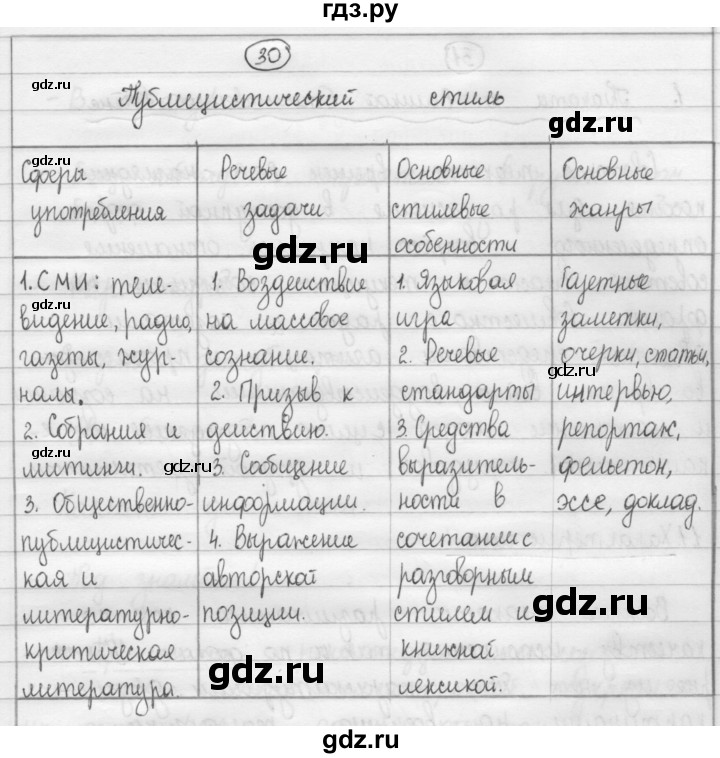 гдз.ру
30
gdz.ru
Публицистический стиль
gdz.ru
gdz.ru
Сферы
употребления
Речевые
задачи
Основные
стилевые
особенности
Основные
жанры
gdz.ru
1. СМИ: теле-
видение, радио,
газеты, жур-
налы.
2. Собрания и
митинги.
3. Общественно-
публицистичес-
кая и
литературно-
критическая
литература.
1. Воздействие
на массовое
сознание.
2. Призыв к
действию.
3. Сообщение
информации.
4. Выражение
авторской
позиции.
1. Языковая
игра
2. Речевые
стандарты
3. Средства
выразитель-
ности в
сочетании с
разговорным
стилем и
книжной
лексикой.
Газетные
заметки,
очерки, статьи,
интервью,
репортаж,
фельетон,
эссе, доклад.
gdz.ru
gdz.ru
gdz.ru
gdz.ru
gdz.ru
gdz.ru
gdz.ru
gdz.ru